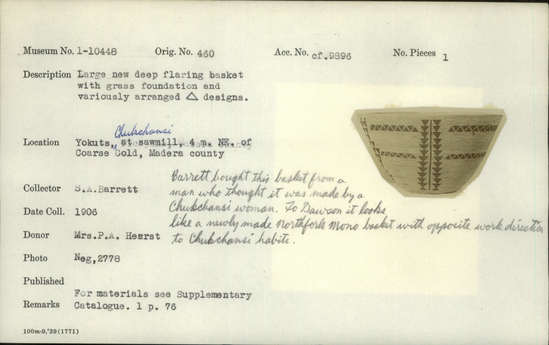 Museum No. 1-10448 Orig. No. 460 Acc. No. cf.9896 No. Pieces 1
Description Large new deep flaring basket
with grass foundation and
variously arranged △ designs.
Chukchansi
Location Yokuts, at sawmill, 4 m. NE. of
Coarse Gold, Madera county
Collector S.A.Barrett
Date Coll. 1906
Donor Mrs.P.A. Hearst
Barrett bought this basket from a
man who thought it was made by a
Chukchansi woman. To Dawson it looks
like a newly made Northfork Mono basket with opposite work direction
to Chukchansi habits.
Photo Neg,2778
Published
Remarks For materials see Supplementary
Catalogue. 1 p. 76
100m-9,'39(1771)